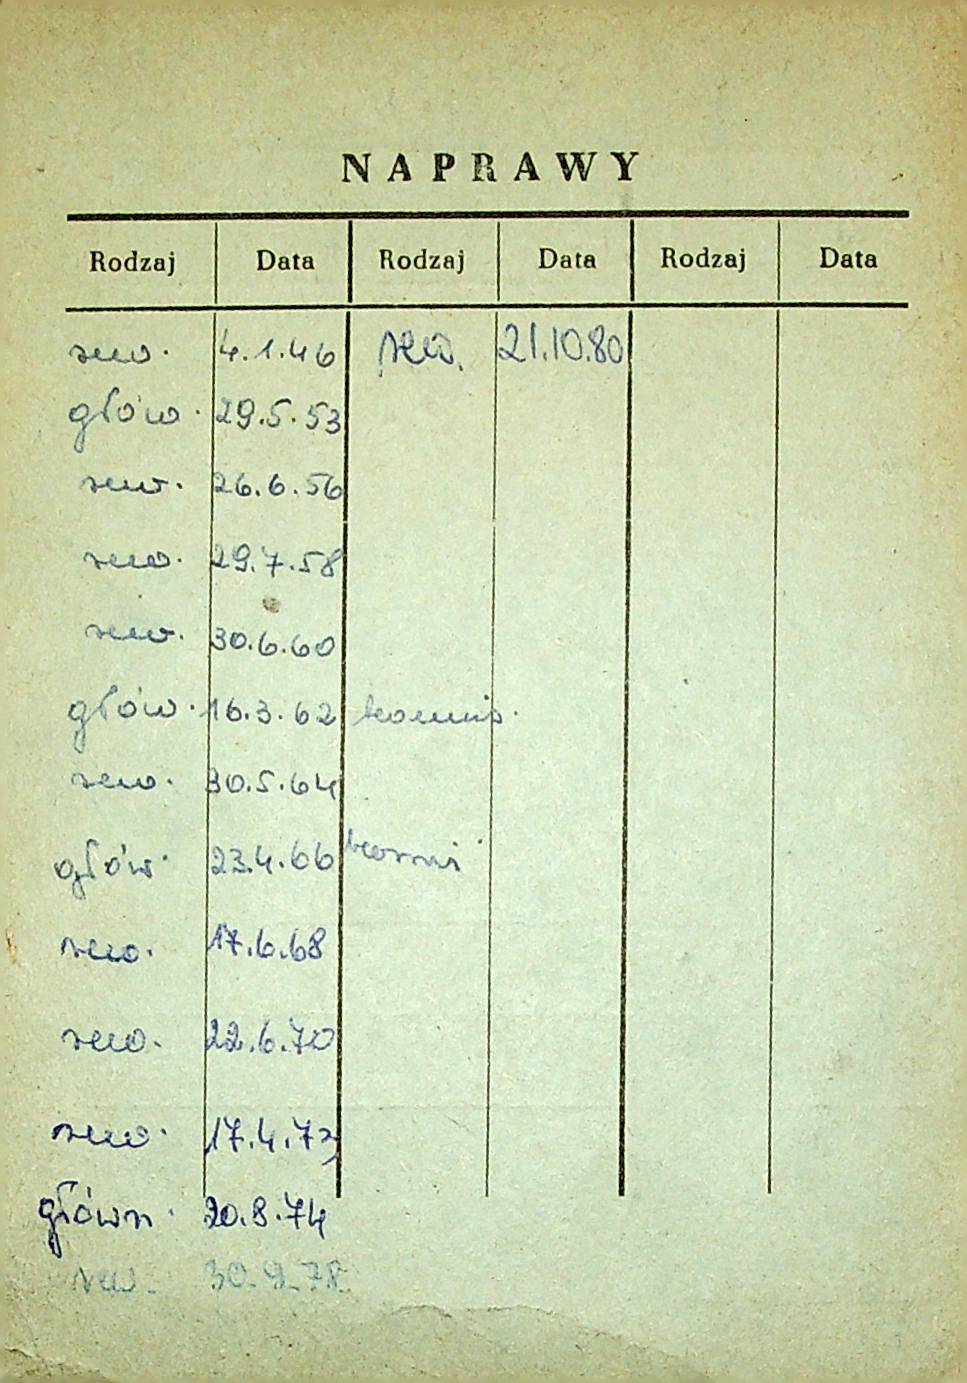 NAPRAWY
Rodzaj Data Rodzaj Data Rodzaj Data
rew. 4.1.46 rew. 21.10.80
głów. 29.5.53
rew. 26.6.56
rew. 29.7.58
rew. 30.6.60
głów. 16.3.62 komis.
rew. 30.5.64
głów. 23.4.66 komis.
rew. 17.6.68
rew. 22.6.70
rew. 17.4.72
główn. 20.8.74
rew. 30.9.78